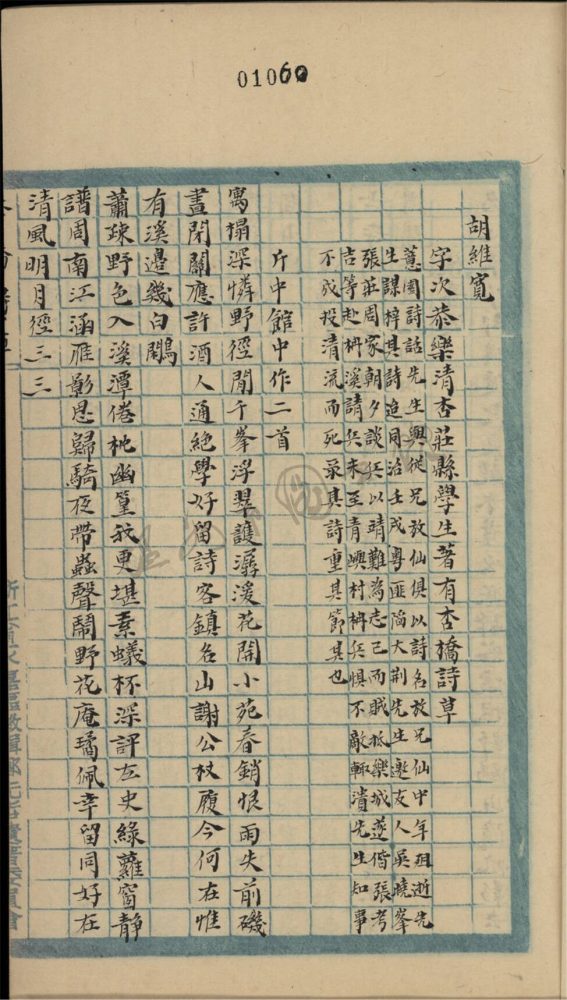 01060
胡維寬
字次恭樂清杏莊縣學生著有杏橋詩草
蕙園詩話先生與從兄放仙俱以詩名放兄仙中年殂逝先
生謀梓其詩追同治壬戌粵匪陷大荆先生邀友人吳曉峯
張莊周家朝夕談兵以靖難為志已而賊抵樂城遂偕張考
吉等赴枬溪請兵未至青嶼村枬兵惧不敵輒潰先生知事
不成投清流而死录其詩重其節其也
斤中館中作二首
寓榻深憐野徑閒千峯浮翠護潺湲花開小苑春銷恨雨失前磯
晝閉關應許酒人通絕學好留詩客鎮名山謝公杖履今何在惟
有溪邊幾白鷴
蕭疎野色入溪潭倦枕幽篁放更堪素蟻杯深評左史綠蘿窗静
譜周南江涵雁影思歸騎夜帶蟲聲鬧野花庵璚佩幸留同好在
清風明月徑三三